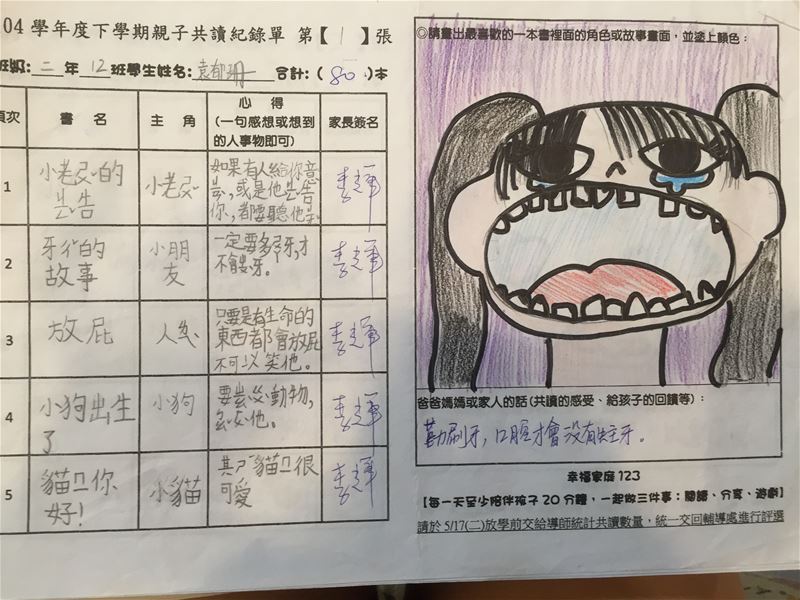 04 學年度下學期親子共讀紀錄單 第【 1 】張
班級: 二 年 12 班學生姓名: 袁郁珊 合計: ( 80 )本
項次 書 名 主 角 心 得 (一句感想或想到的人事物即可) 家長簽名
1 小老ㄕㄨˇ的 小老ㄕㄨˇ 如果有人給你意
告 你，都要聽他
2 牙ㄔˇ的 小朋 一定要多 牙，才
故事 友 不會 牙。
3 放屁 人 只要是有生命的
東西都會放屁
不可以笑他。
4 小狗出生 小狗 要 動物，
了 他。
5 貓ㄇ你 小貓 其 貓ㄇ很
好！ 可愛
◎請畫出最喜歡的一本書裡面的角色或故事畫面，並塗上顏色：
爸爸媽媽或家人的話(共讀的感受、給孩子的回饋等)：
勤刷牙，口腔才會沒有蛀牙。
幸福家庭 123
【每一天至少陪伴孩子 20 分鐘，一起做三件事：閱讀、分享、遊戲】
請於 5/17(二)放學前交給導師統計共讀數量，統一交回輔導處進行評選